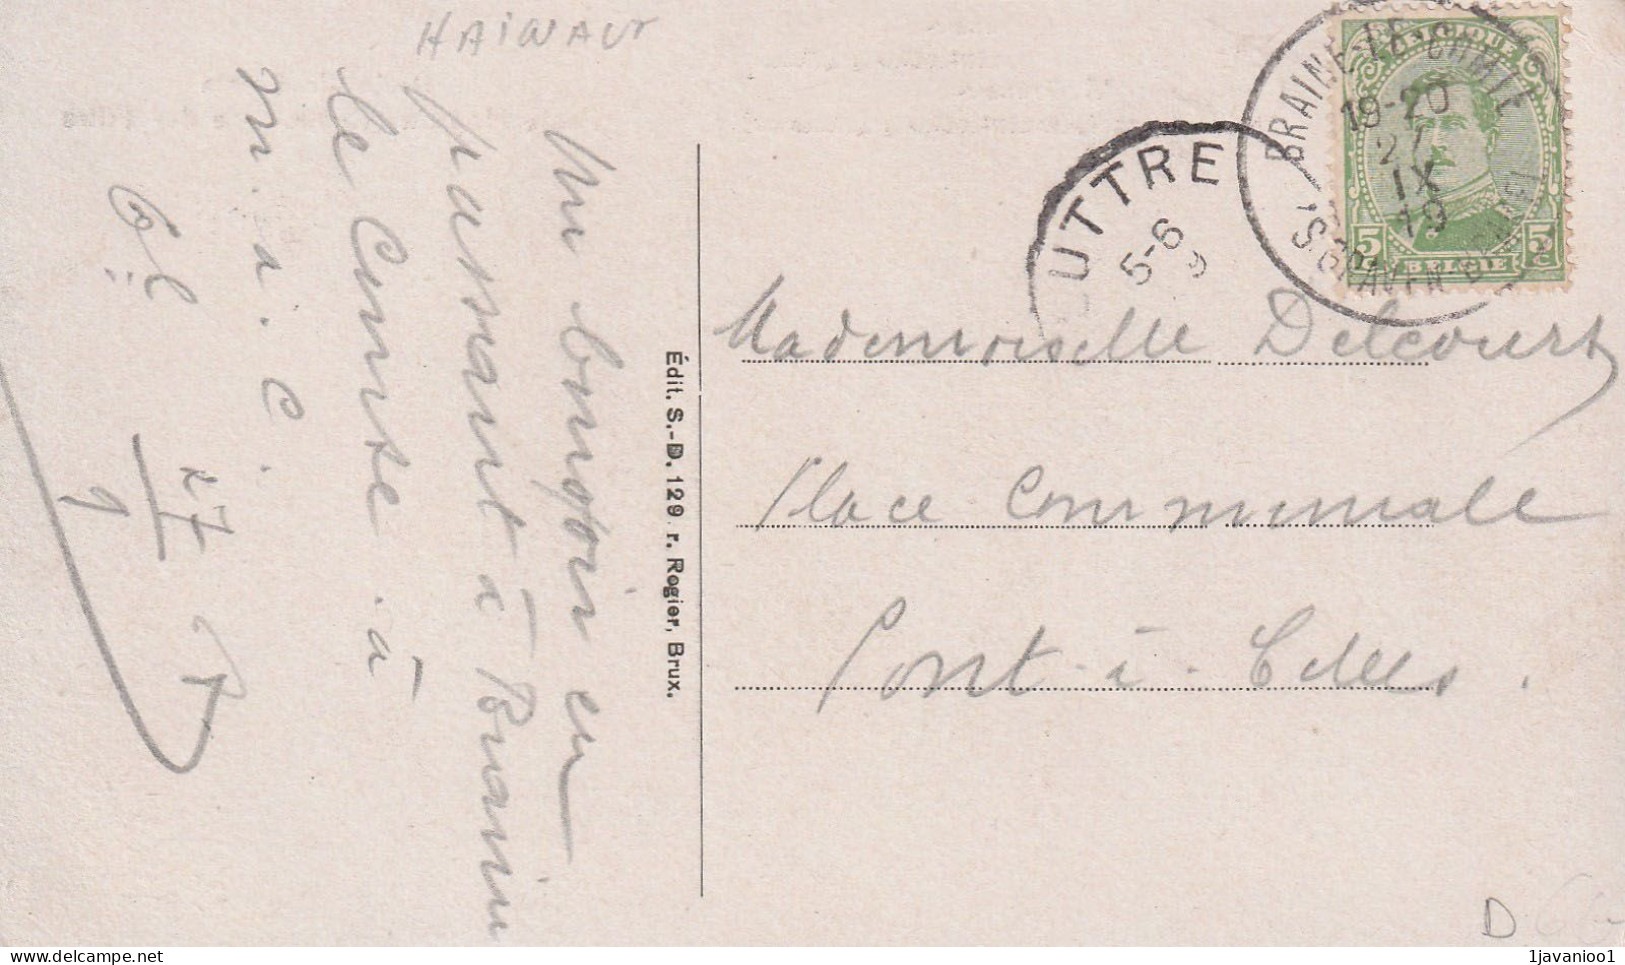 HAINAUT
Un bonsoir en
passant à Braine
le Comte . à
m. a. C.
27
9
Édit. S.-D. 129. r. Rogier, Brux.
BRAINE-LE-COMTE
19-20
27
IX
19
'S GRAVEN
BELGIQUE
5
5
BELGIE
UTTRE
5-6
9
Mademoiselle Delcourt
Place Communale
Pont-à-Celles.
D
1javanioo1